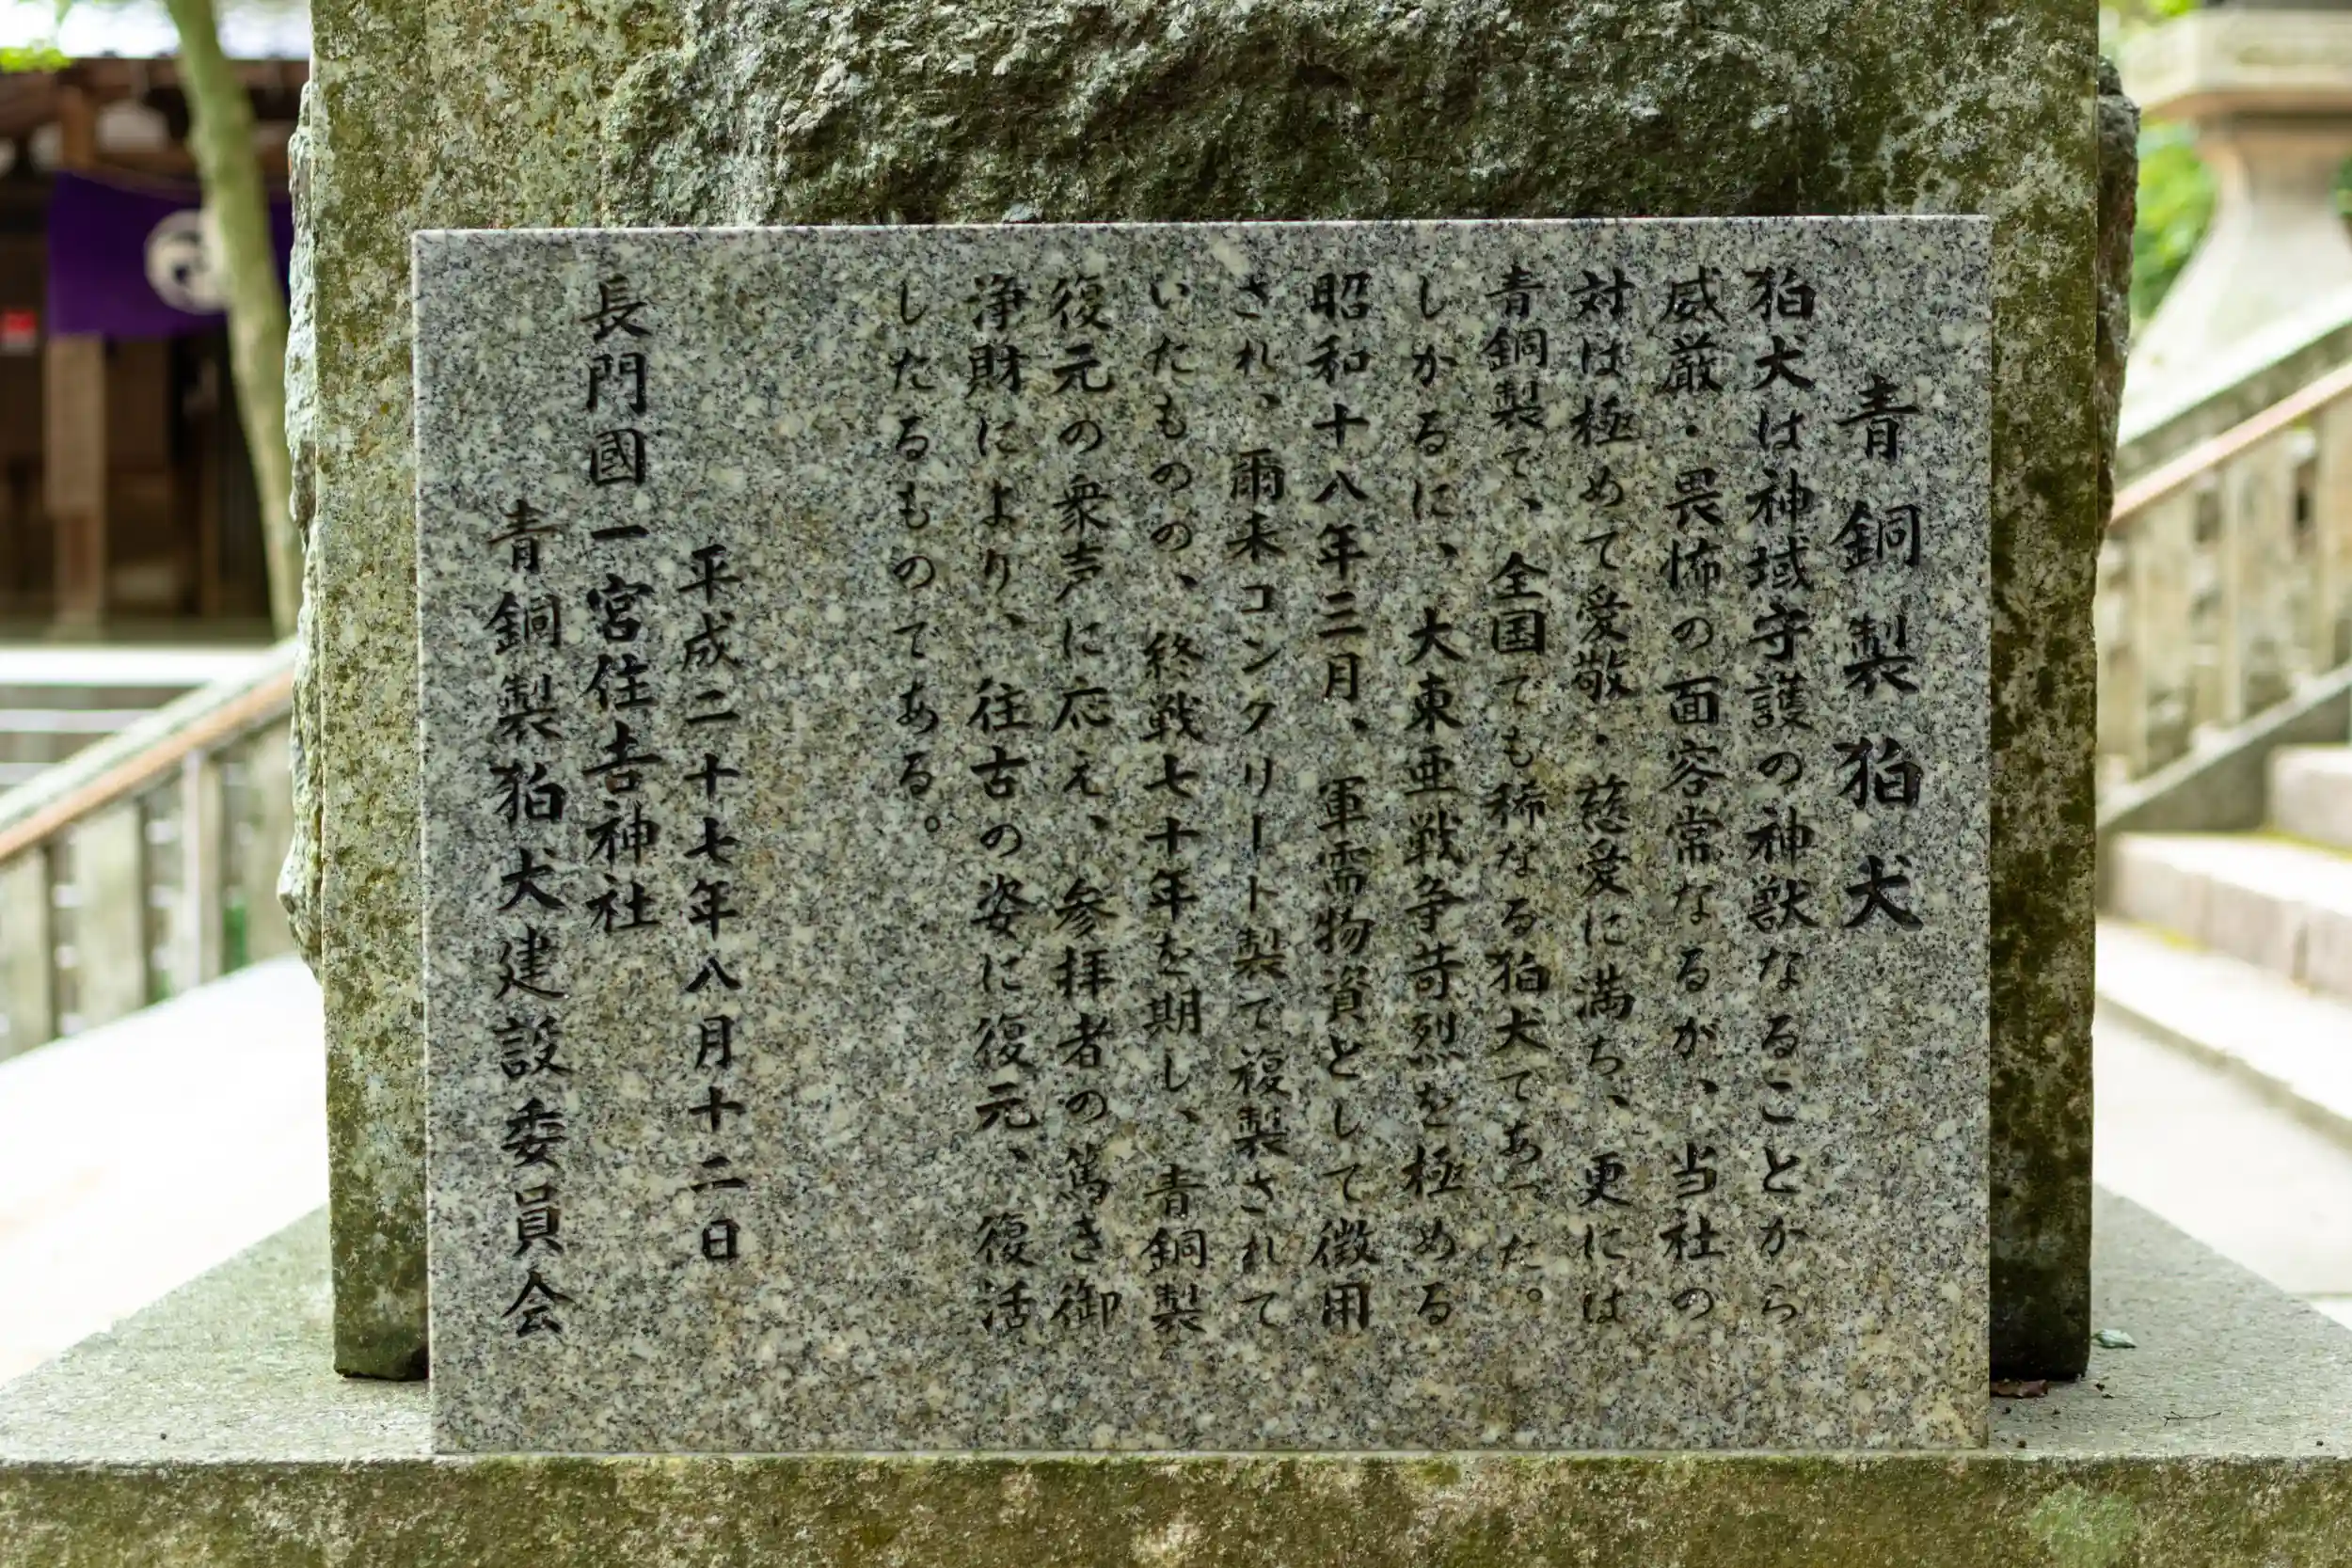 青銅製狛犬
狛犬は神域守護の神獣なることから
威厳・畏怖の面容常なるが、当社の
対は極めて愛敬・慈愛に満ち、更には
青銅製で、全国でも稀なる狛犬であった。
しかるに、大東亜戦争苛烈を極める
昭和十八年三月、軍需物資として徴用
され、爾来コンクリート製で複製されて
いたものの、終戦七十年を期し、青銅製
復元の衆声に応え、参拝者の篤き御
浄財により、往古の姿に復元、復活
したるものである。
平成二十七年八月十二日
長門國一宮住吉神社
青銅製狛犬建設委員会